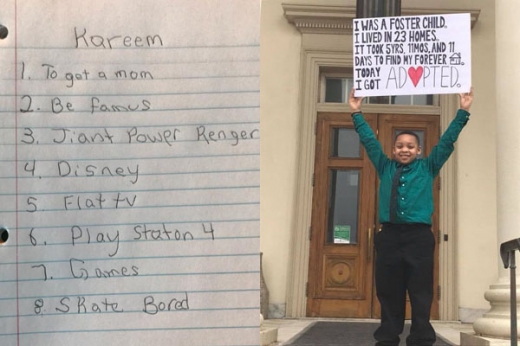 Kareem
1. To got a mom
2. Be famus
3. Jiant Power Renger
4. Disney
5. Flat tv
6. Play Staton 4
7. Games
8. Skate Bored
I WAS A FOSTER CHILD.
I LIVED IN 23 HOMES.
IT TOOK 5YRS, 11MOS, AND 11
DAYS TO FIND MY FOREVER
TODAY
I GOT ADOPTED.